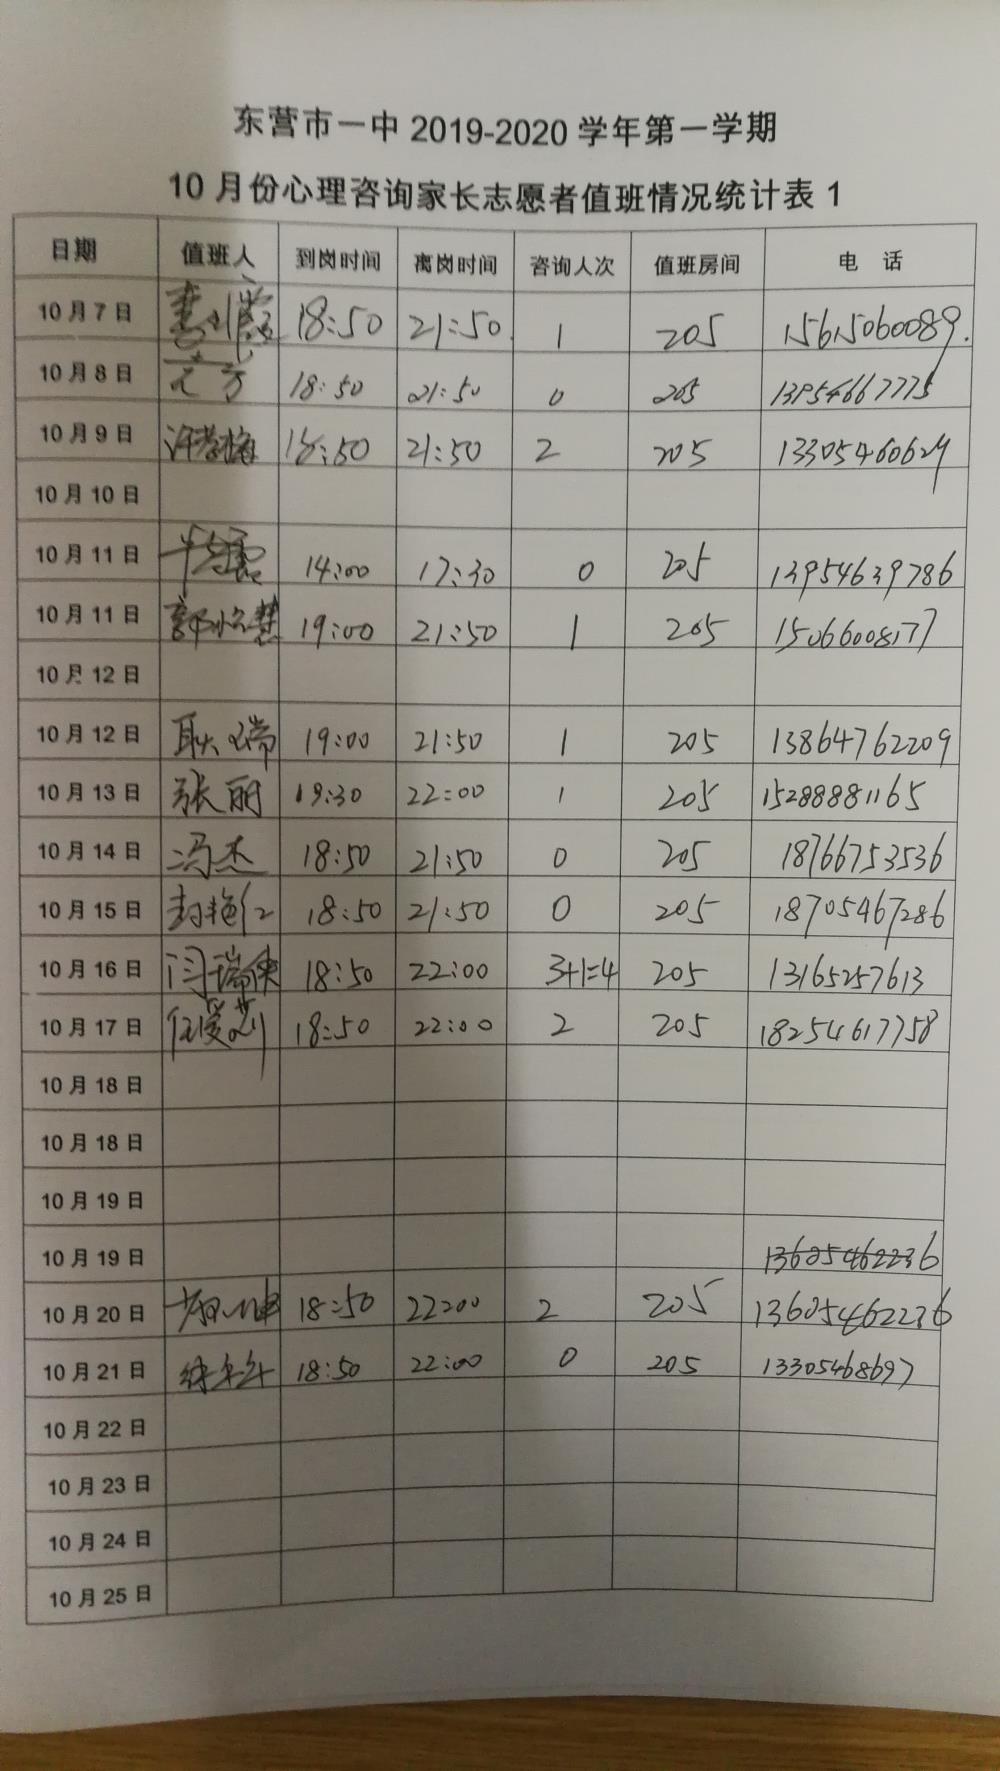 东营市一中 2019-2020 学年第一学期
10 月份心理咨询家长志愿者值班情况统计表 1
日期 值班人 到岗时间 离岗时间 咨询人次 值班房间 电 话
10 月 7 日 18:50 21:50 1 205 15615060089
10 月 8 日 18:50 21:50 0 205 13954667775
10 月 9 日 18:50 21:50 2 205
10 月 10 日
10 月 11 日 14:00 17:30 0 205 13954639786
10 月 11 日 19:00 21:50 1 205 15066008177
10 月 12 日
10 月 12 日 耿文瑞 19:00 21:50 1 205 13864762209
10 月 13 日 张丽 19:30 22:00 1 205 15288881165
10 月 14 日 冯杰 18:50 21:50 0 205 18766753536
10 月 15 日 封艳仁 18:50 21:50 0 205 18705467286
10 月 16 日 闫瑞侠 18:50 22:00 3+1=4 205 13165257613
10 月 17 日 任爱莉 18:50 22:00 2 205 18254617758
10 月 18 日
10 月 18 日
10 月 19 日
10 月 19 日 13605462236
10 月 20 日 18:50 22:00 2 205 13605462236
10 月 21 日 18:50 22:00 0 205 13305468697
10 月 22 日
10 月 23 日
10 月 24 日
10 月 25 日